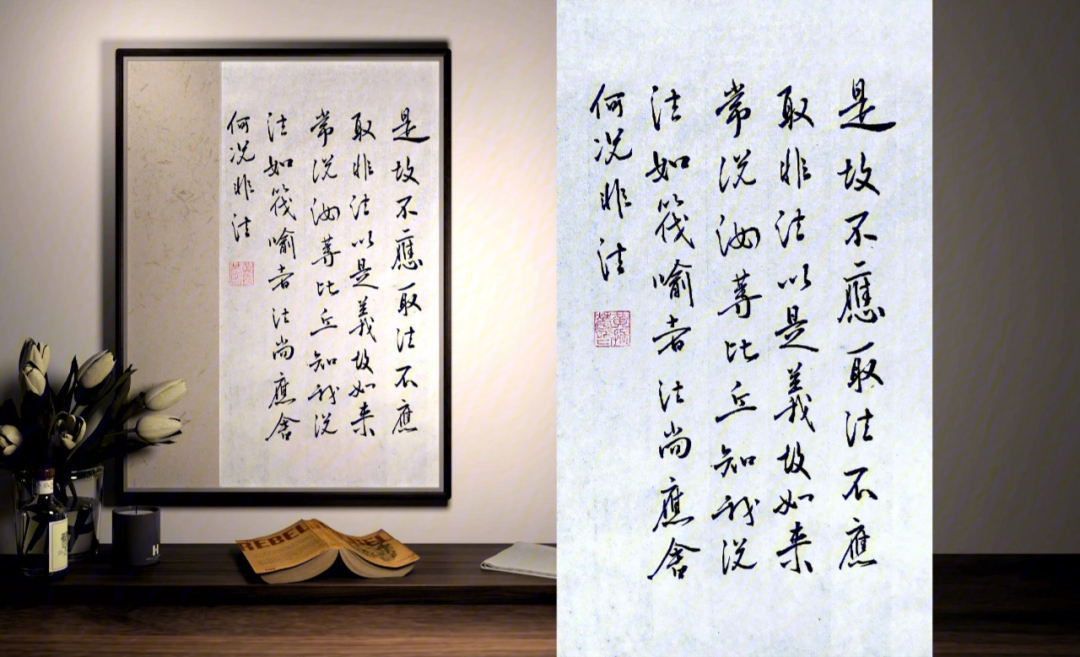 是故不應取法不應
取非法以是義故如来
常説汝等比丘知我説
法如筏喻者法尚應舍
何况非法
是故不應取法不應
取非法以是義故如来
常説汝等比丘知我説
法如筏喻者法尚應舍
何况非法
REBEL
REBEL
H